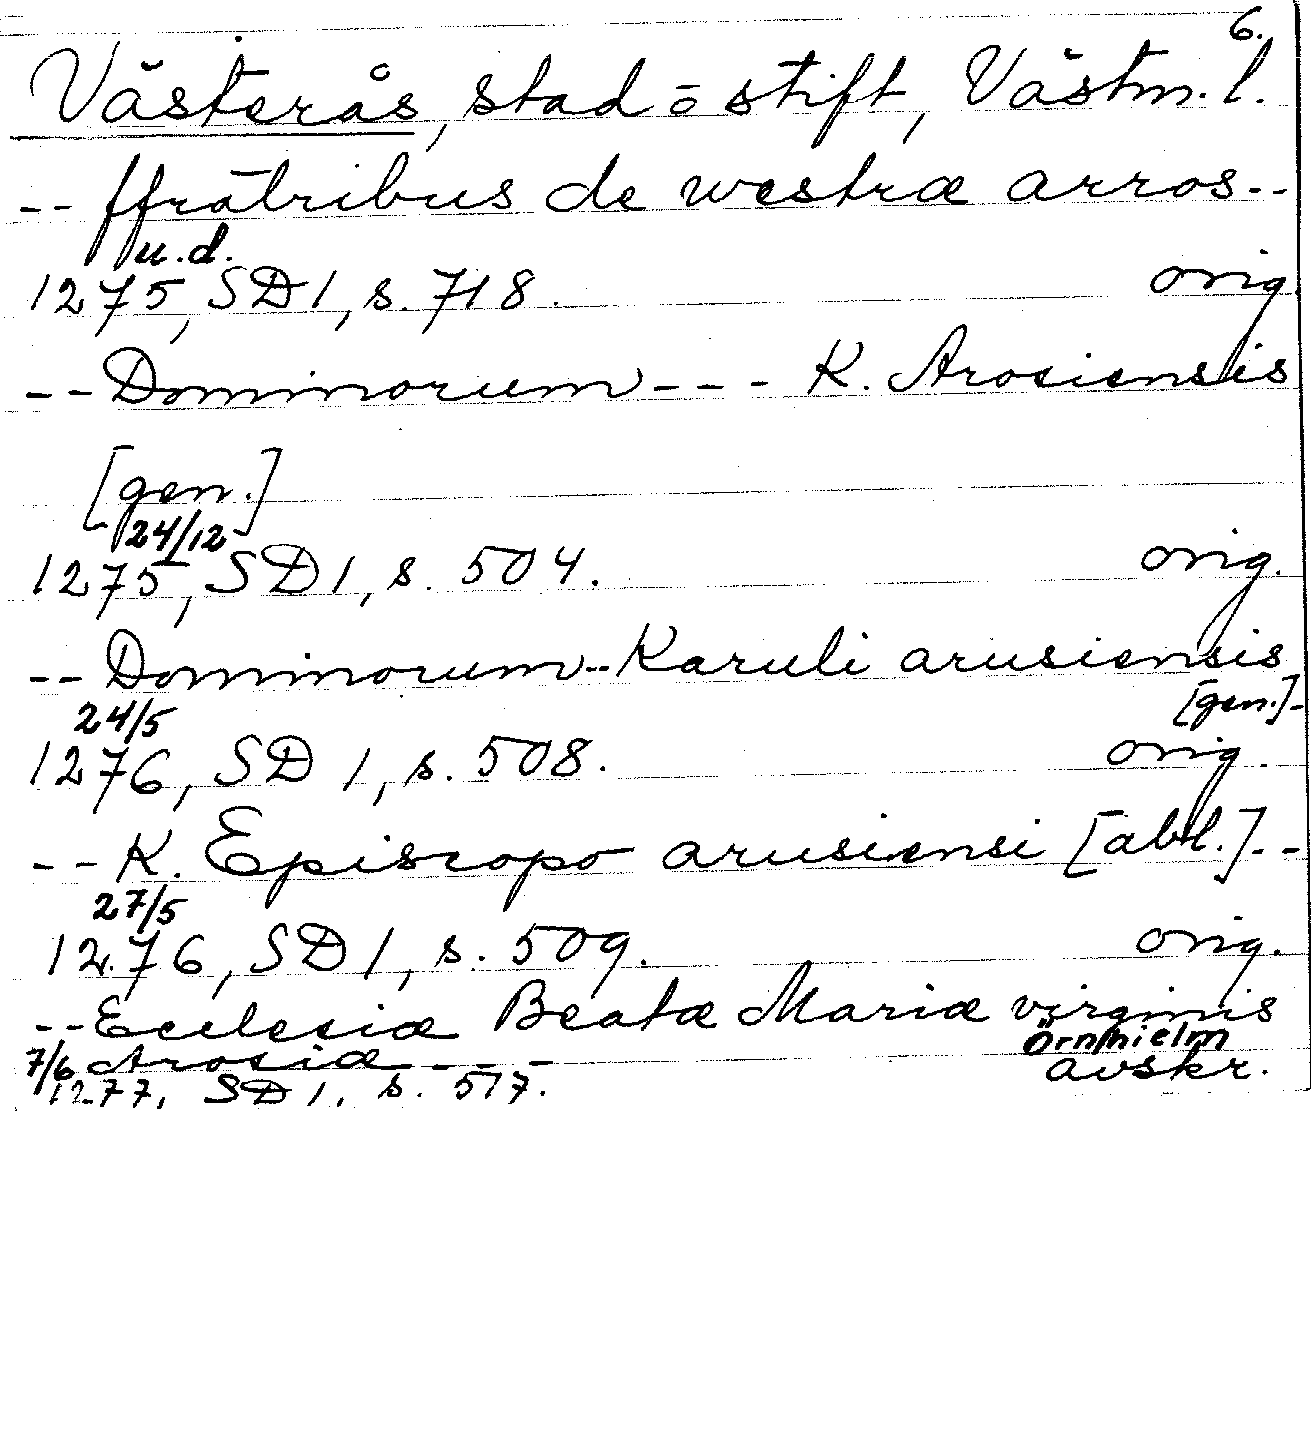 6.
Västerås, stad o stift, Västm. l.
-- ffratribus de westræ arros--
u.d.
1275, SD 1, s. 718. orig.
-- Dominorum --- K. Arosiensis
[gen.]
24/12
1275, SD 1, s. 504. orig.
-- Dominorum -- Karuli arusiensis
24/5 [gen.]-
1276, SD 1, s. 508. orig.
-- K. Episcopo arusiensi [abl.]--
27/5
1276, SD 1, s. 509. orig.
-- Ecclesiæ Beatæ Mariæ virginis
7/6 Arosiæ ---- Örnhielm
1277, SD 1, s. 517. avskr.